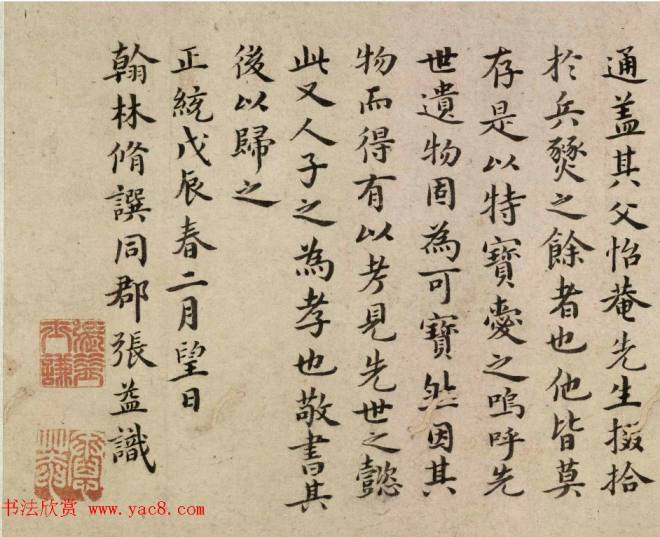 通盖其父怡菴先生掇拾
扵兵燹之餘者也他皆莫
存是以特寶愛之嗚呼先
世遺物固為可寶然因其
物而得有以考見先世之懿
此又人子之為孝也敬書其
後以歸之
正統戊辰春二月望日
翰林脩譔同郡張益識
书法欣赏 www.yac8.com